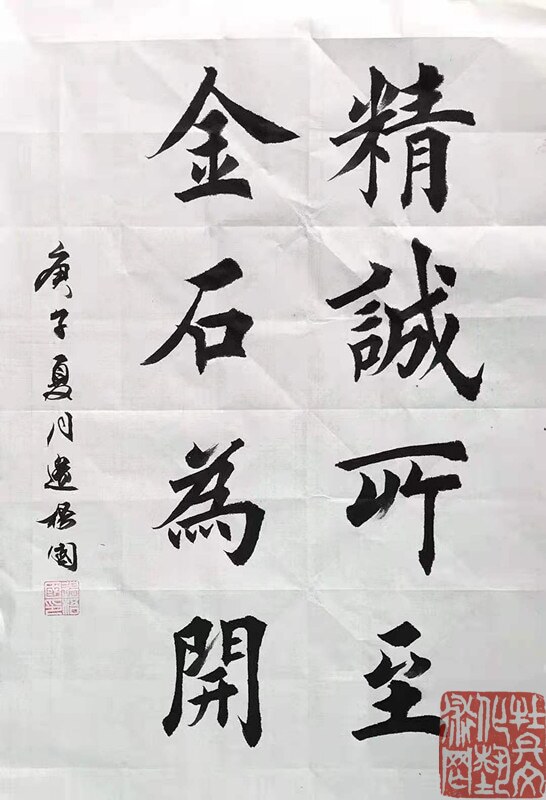 精誠所至
金石為開
庚子夏月